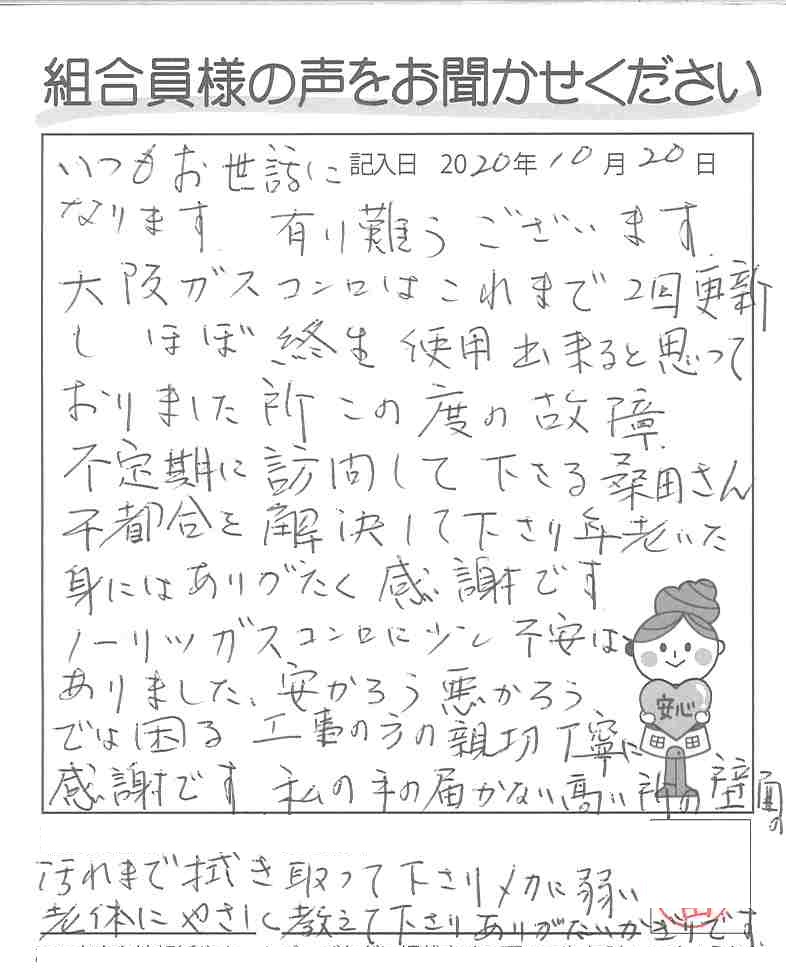 組合員様の声をお聞かせください
記入日 2020年10月20日
いつもお世話に
なります 有り難うございます
大阪ガスコンロはこれまで2回更新
し ほぼ終生使用出来ると思って
おりました所この度の故障
不定期に訪問して下さる桑田さん
不都合を解決して下さり年老いた
身にはありがたく感謝です
ノーリツガスコンロに少し不安は
ありました、安かろう悪かろう
では困る 工事の方の親切丁寧に
感謝です 私の手の届かない高い所の壁面の
汚れまで拭き取って下さりメカに弱い
老体にやさしく教えて下さりありがたいかぎりです
安心